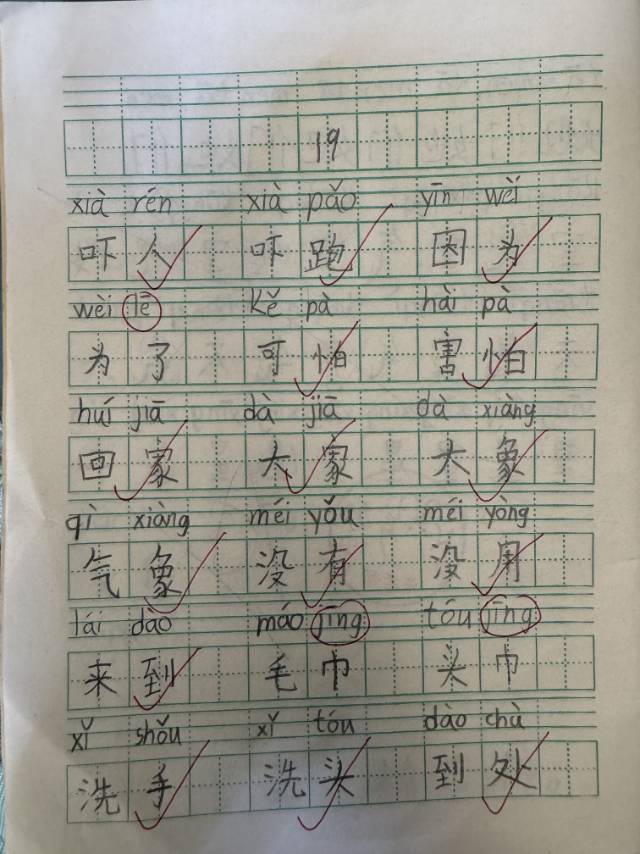 19
xià rén xià pǎo yīn wěi
吓人 吓跑 因为
wèi lē kě pà hài pà
为了 可怕 害怕
huí jiā dà jiā dà xiàng
回家 大家 大象
qì xiàng méi yǒu méi yòng
气象 没有 没用
lái dào máo jīng tóu jīng
来到 毛巾 头巾
xǐ shǒu xǐ tóu dào chù
洗手 洗头 到处